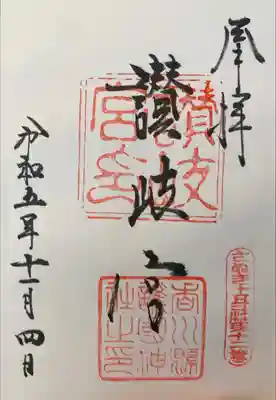 奉拝
讃岐宮
讃岐宮印
香川縣護國神社之印
令和五年十一月四日